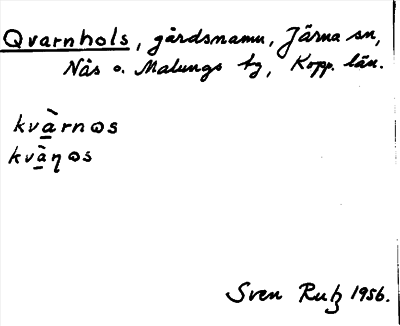 Qvarnhols, gårdsnamn, Järna sn,
Nås o. Malungs tg, Kopp. län.
kvàrnωs
kvàηωs
Sven Rutz 1956.